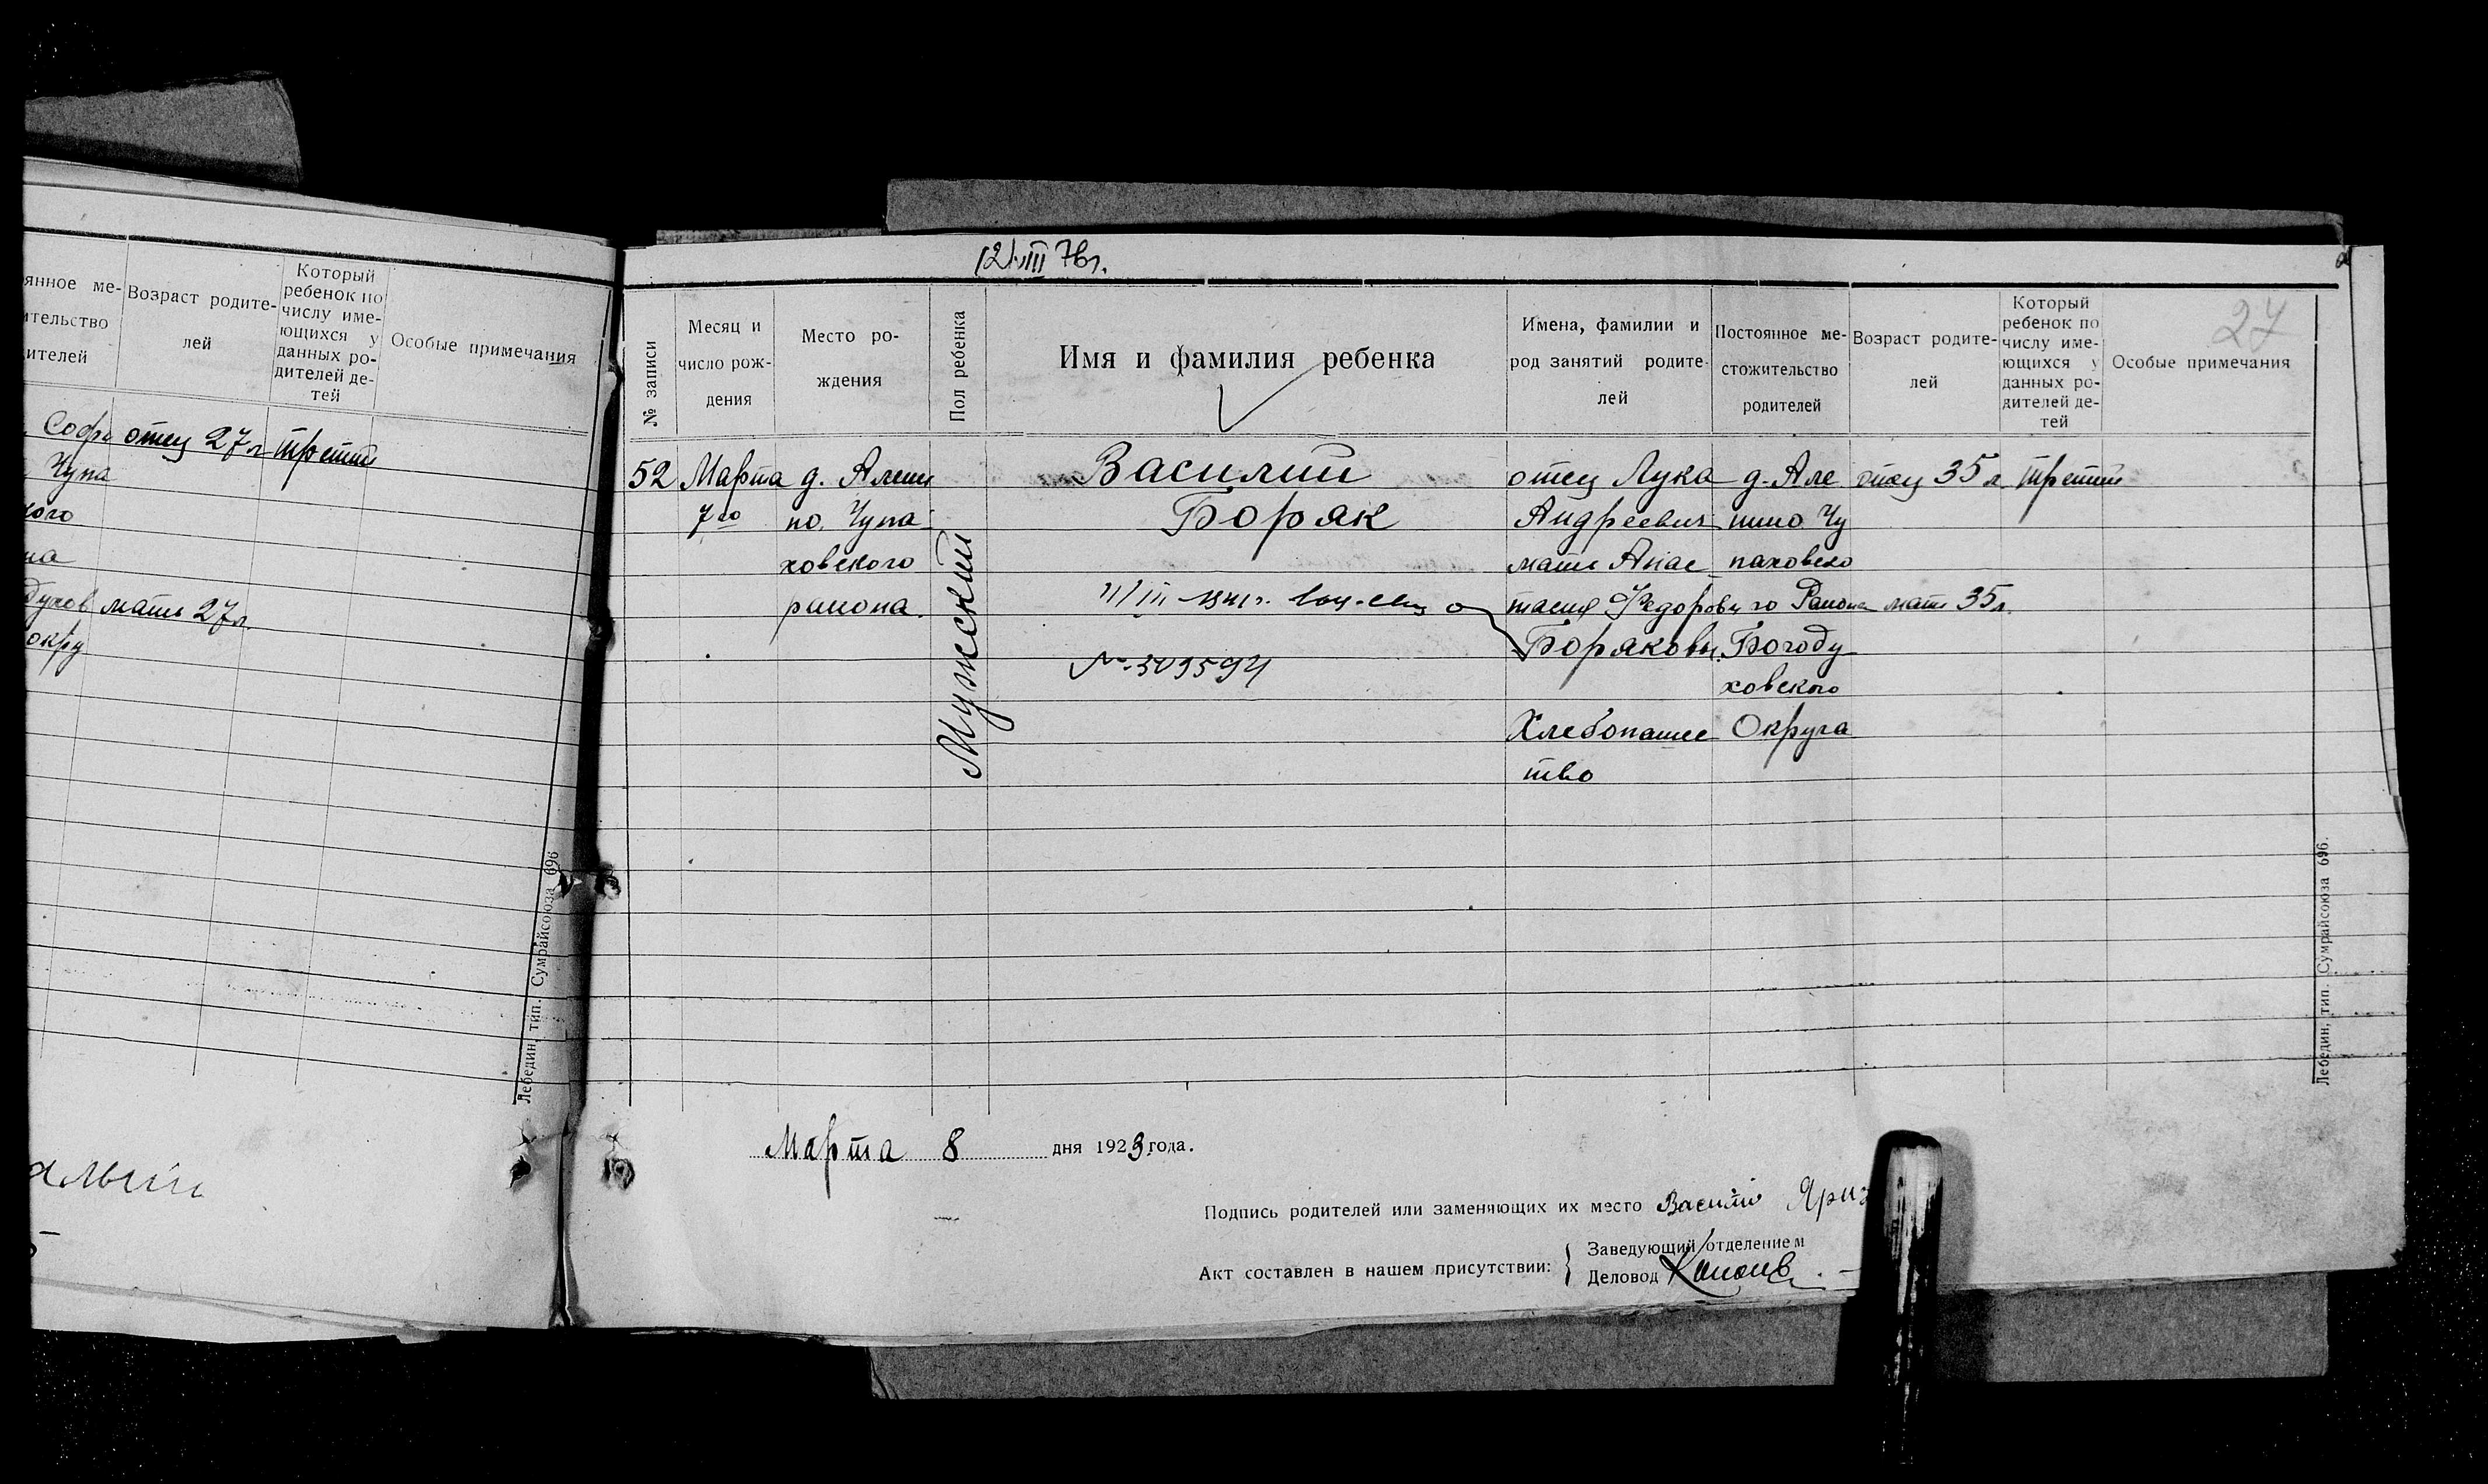 янное ме-
ительство
ителей
Возраст родите-
лей
Который
ребенок по
числу име-
ющихся у
данных ро-
дителей де-
тей
Особые примечания
Софи отец 27 л третий
Чупа
кого
на
духов мать 27 л.
окру
Лебедин, тип. Сумрайсоюза 696
12/VIII 76г.
27
№ записи
Месяц и
число рож-
дения
Место ро-
ждения
Пол ребенка
Имя и фамилия ребенка
Имена, фамилии и
род занятий родите-
лей
Постоянное ме-
стожительство
родителей
Возраст родите-
лей
Который
ребенок по
числу име-
ющихся у
данных ро-
дителей де-
тей
Особые примечания
52 Марта
7го
д. Алеш
но, Чупа-
ховского
района.
Мужский
Василий
Боряк
№ 309594
отец Лука
Андреевич
мать Анас
тасия Федоровн
Боряковы.
Хлебопашес
тво
д. Але
шино Чу
паховско
го Района
Богоду
ховского
Округа
отец 35 л.
мать 35 л.
третий
Марта 8 дня 1923 года.
Подпись родителей или заменяющих их место Василий
Акт составлен в нашем присутствии:
Заведующий отделением
Деловод
Лебедин, тип. Сумрайсоюза 696.